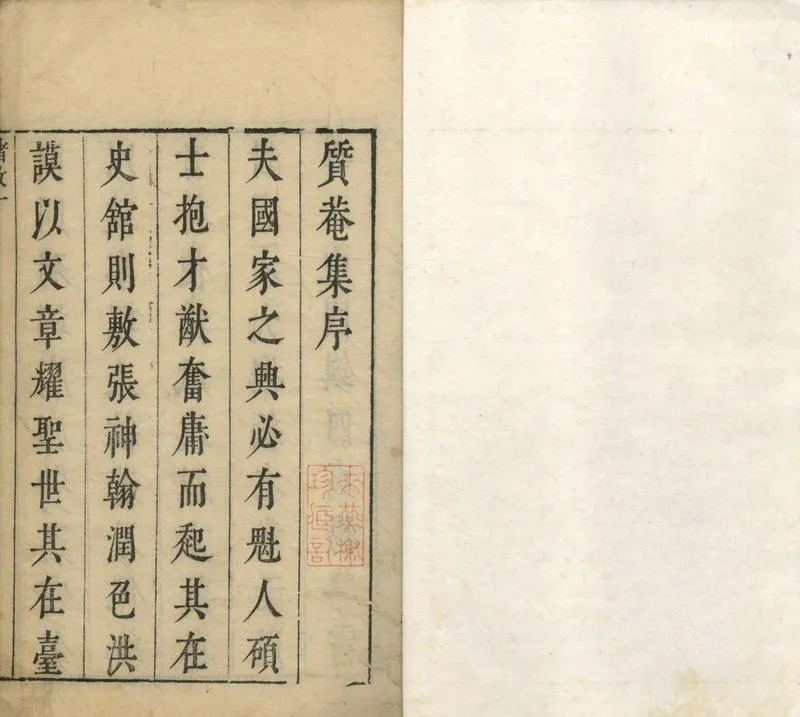 質菴集序
夫國家之興必有魁人碩
士抱才猷奮庸而起其在
史館則敷張神翰潤色洪
謨以文章耀聖世其在臺